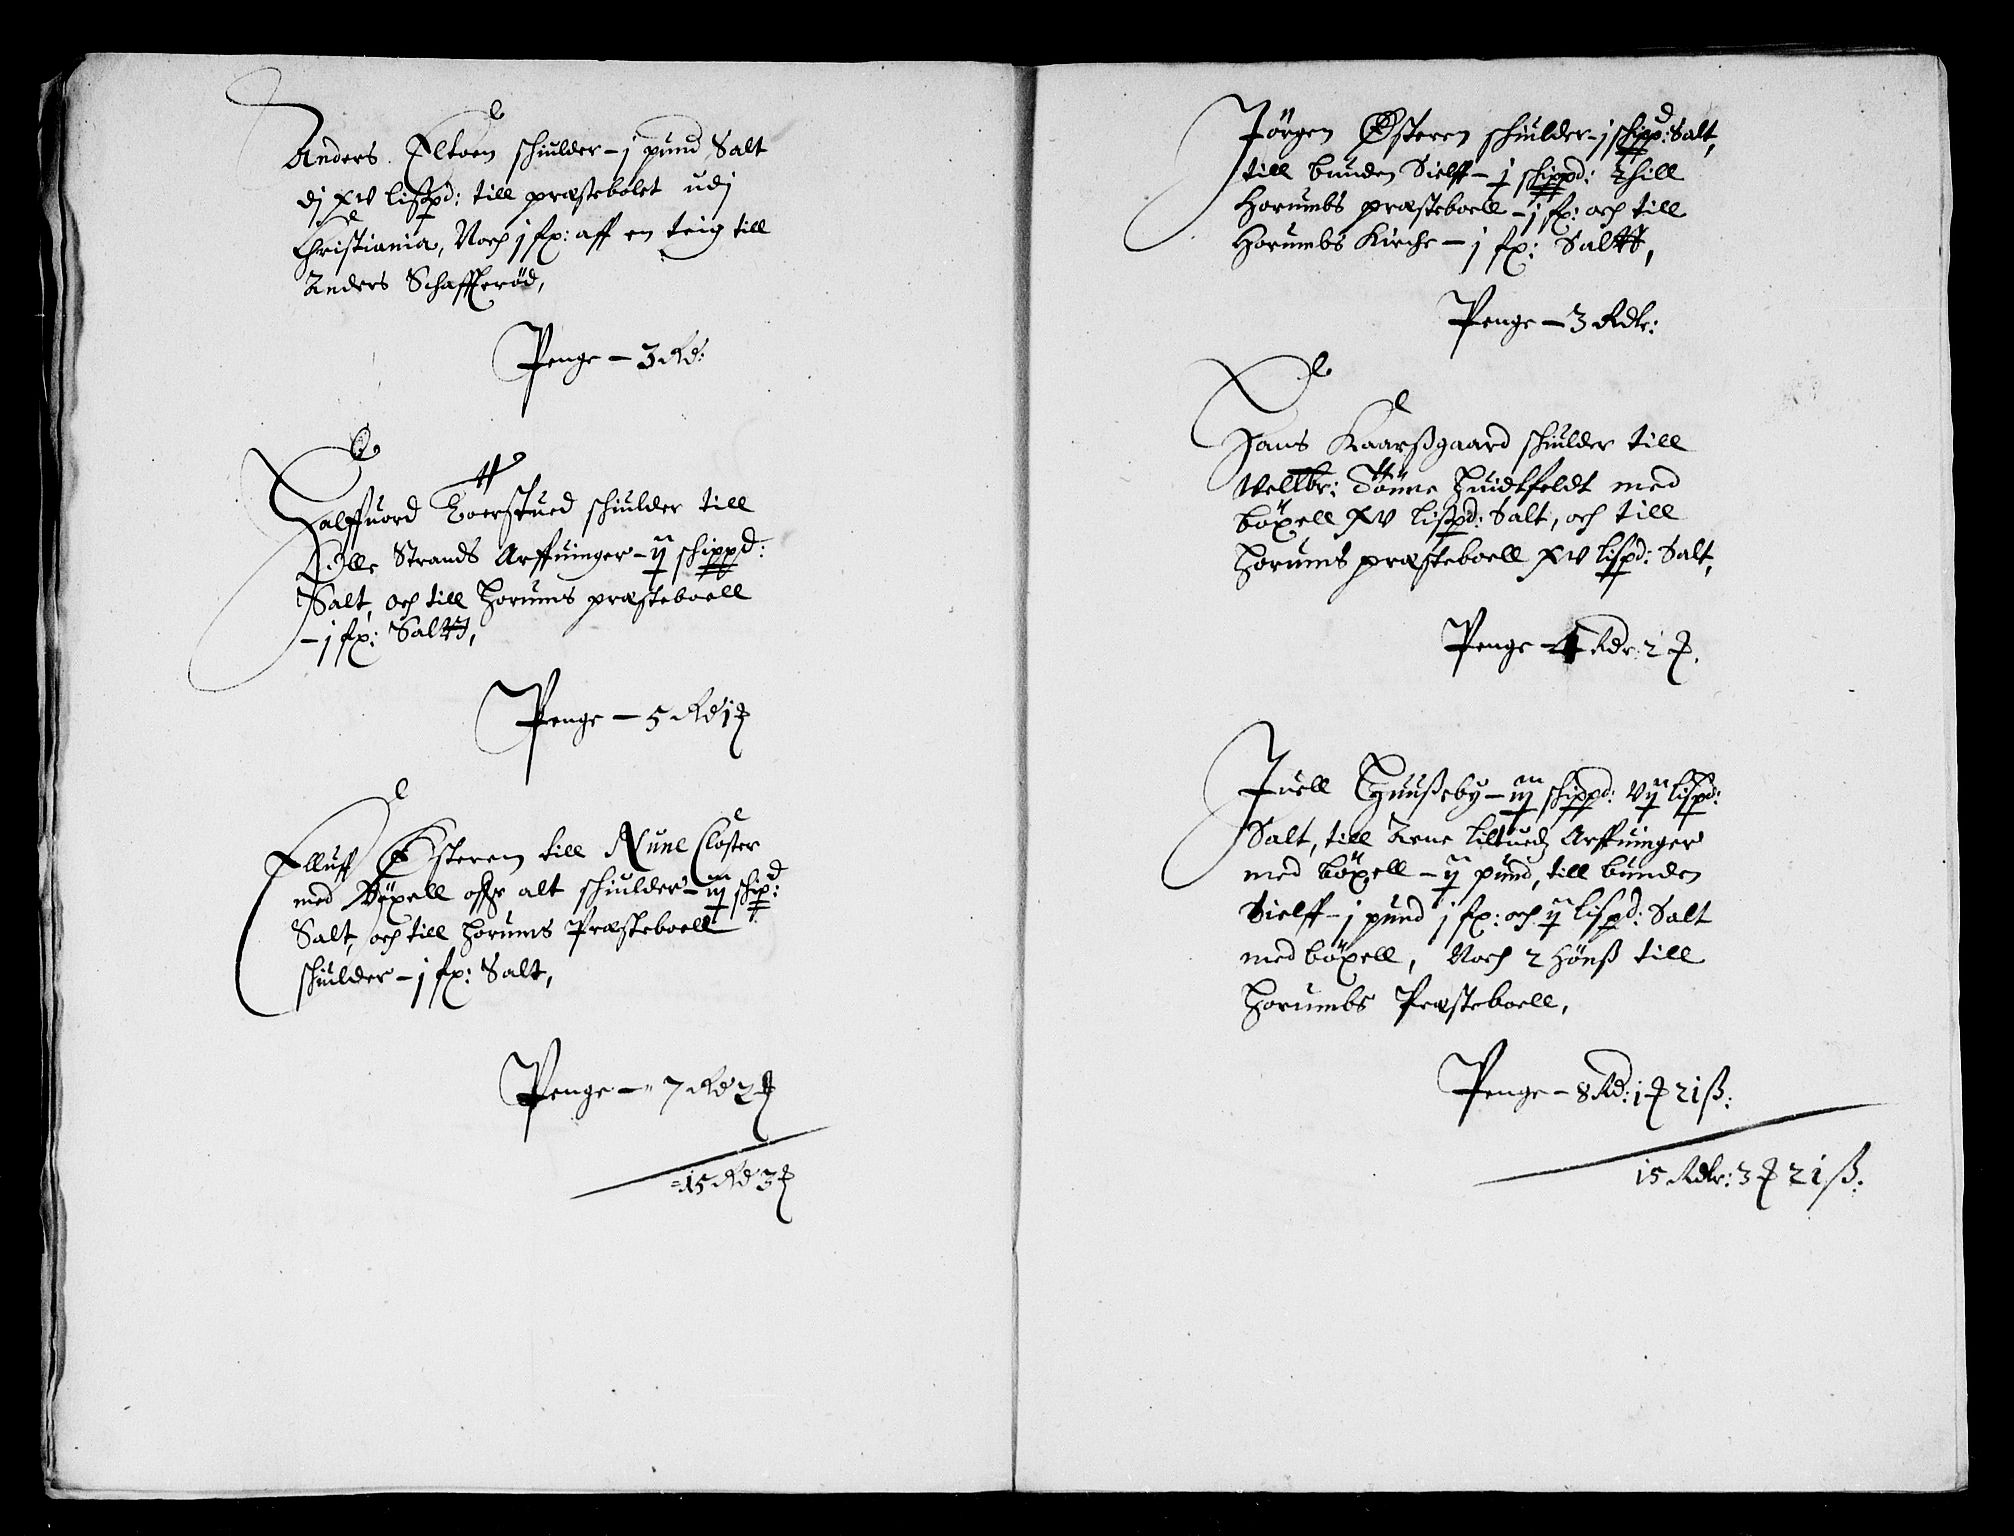 Anders Elkoen schiulder – j pund Salt
dj xv lispd: till præstebolet udj
Christiania, Noch j fx: aff en teig till
Anders Schafferöd,
Penge – 3 Rd:
Halffuord Toerstued schiulder till
Olle Strands Arffuinger – ij schippd:
Salt, och till Horums præsteboell
– j fx: Saltt,
Penge – 5 Rd 1 ƺ
Elluff Østeren till Nune Closter
med Böxell offr alt schiulder – iij schipd:
Salt, och till Horums Præsteboell
schiulder – j fx: Salt,
Penge – 7 Rd 2 ƺ
15 Rd 3 ƺ
Jörgen Østeren schiulder – j schippd: Salt,
till bunden Sielff – j schippd: Thill
Horumbs præsteboell – j fx: och till
Horumbs Kirche – j fx: Saltt,
Penge – 3 Rdlr:
Hans Kaarßgaard schiulder till
Wellbr: Tönne Huidtfeldt med
böxell xv lispd: Salt, och till
Horums præsteboell xv lispd: Salt,
Penge – 4 Rdr: 2 ƺ.
Juell Huußeby – iij schippd: vij lispd:
Salt, till Arne liltuedz Arffuinger
med böxell – ij pund, till bunden
Sielff – j pund j fx: och ij lispd: Salt
med böxell, Noch 2 Hönß till
Horumbs Præsteboell,
Penge – 8 Rd: 1 ƺ 21 ß:
15 Rdlr: 3 ƺ 21 ß: